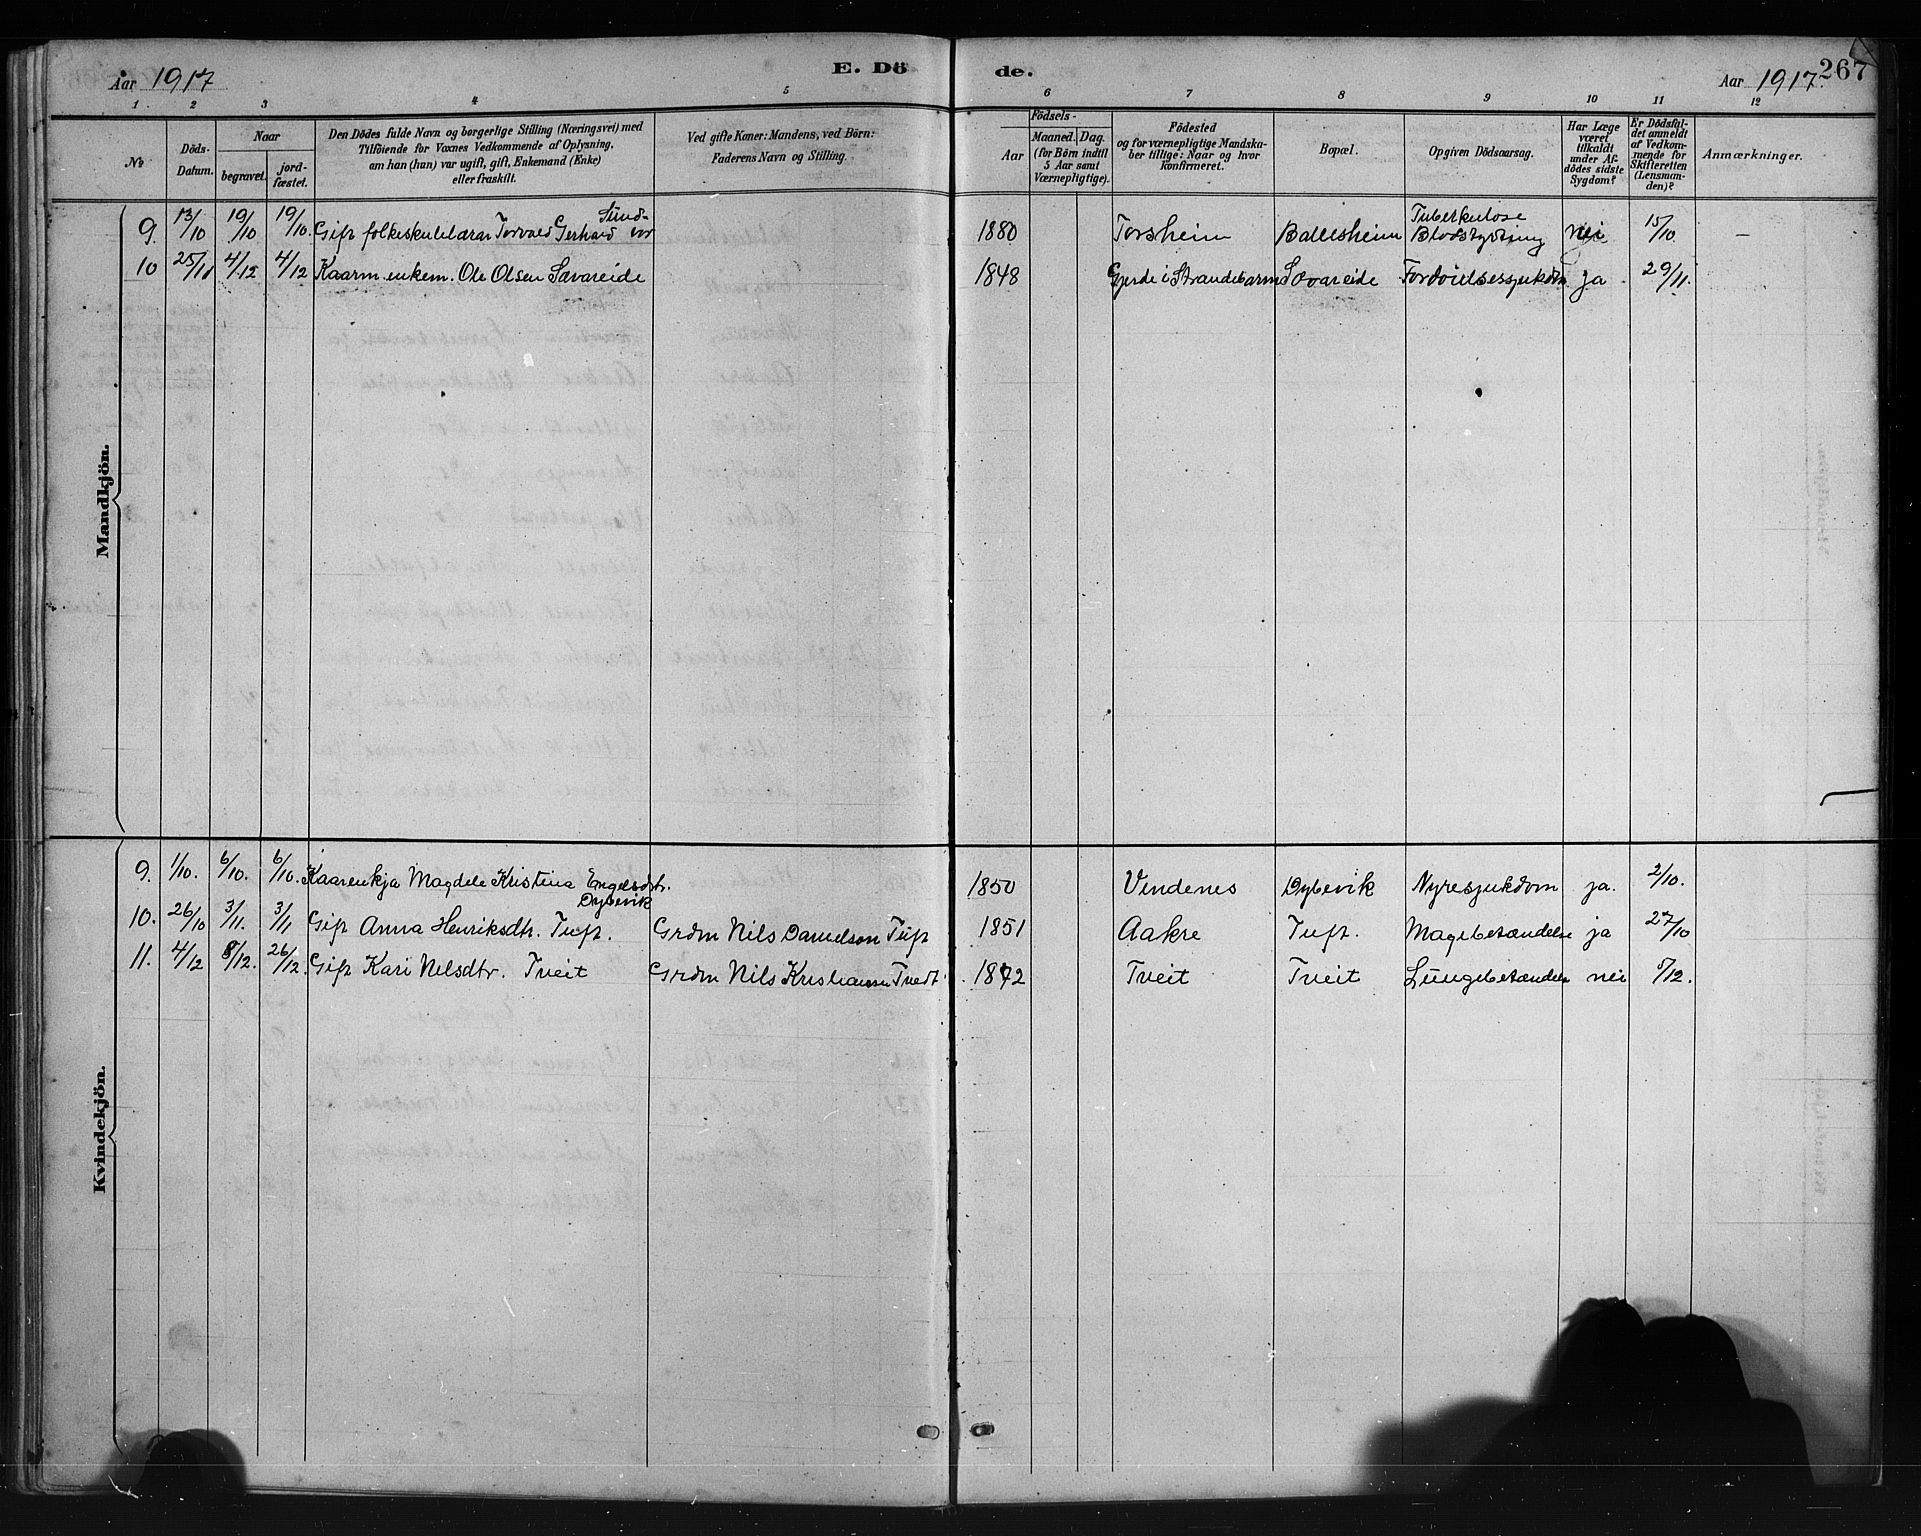 Aar 1917
E. Dö
de.
Aar 1917.
267
1. 2 3 4 5 6 7 8 9 10 11 12
No
Döds-Datum.
Naar
begravet.
jord-fæstet.
Den Dödes fulde Navn og borgerlige Stilling (Næringsvei) med
Tilföiende for Voxnes Vedkommende af Oplysning,
om han (hun) var ugift, gift, Enkemand (Enke)
eller fraskilt.
Ved gifte Koner: Mandens, ved Börn:
Faderens Navn og Stilling.
Födsels-
Aar
Maaned. Dag.
(for Börn indtil
5 Aar samt
Værnepligtige).
Födested
og for værnepligtige Mandska-
ber tillige: Naar og hvor
konfirmeret.
Bopæl.
Opgiven Dödsaarsag.
Har Læge
været
tilkaldt
under Af-
dödes sidste
Sygdom?
Er Dödsfal-
det anmeldt
af Vedkom-
mende for
Skifteretten
(Lensman-
den)?
Anmærkninger.
Mandkjön.
9. 13/10 19/10 19/10. Gift folkeskulelærar Torvald Gerhard Sundvor 1880 Torsheim Ballesheim Tuberkulose Blodstyrtning nei 15/10 —
10 25/11 4/12 4/12 Kaarm. enkem. Ole Olsen Sævareide 1848 Gjerde i Strandebarm Sævareide Fordøielsessjukdom ja 29/11.
Kvindekjön.
9. 1/10. 6/10. 6/10. Kaarenkja Magdele Kristina Engelsdtr. Dybevik 1850 Vindenes Dybevik Nyresjukdom ja. 2/10.
10. 26/10 3/11. 3/11 Gift Anna Henriksdtr. Tuft. Grdm Nils Danielson Tuft 1851 Aakre Tuft. Magebetændelse ja 27/10
11. 4/12 8/12. 26/12. Gift Kari Nilsdtr. Tveit Grdm Nils Kristiansen Tvedt. 1872 Tveit Tveit Lungebetændelse nei 5/12.